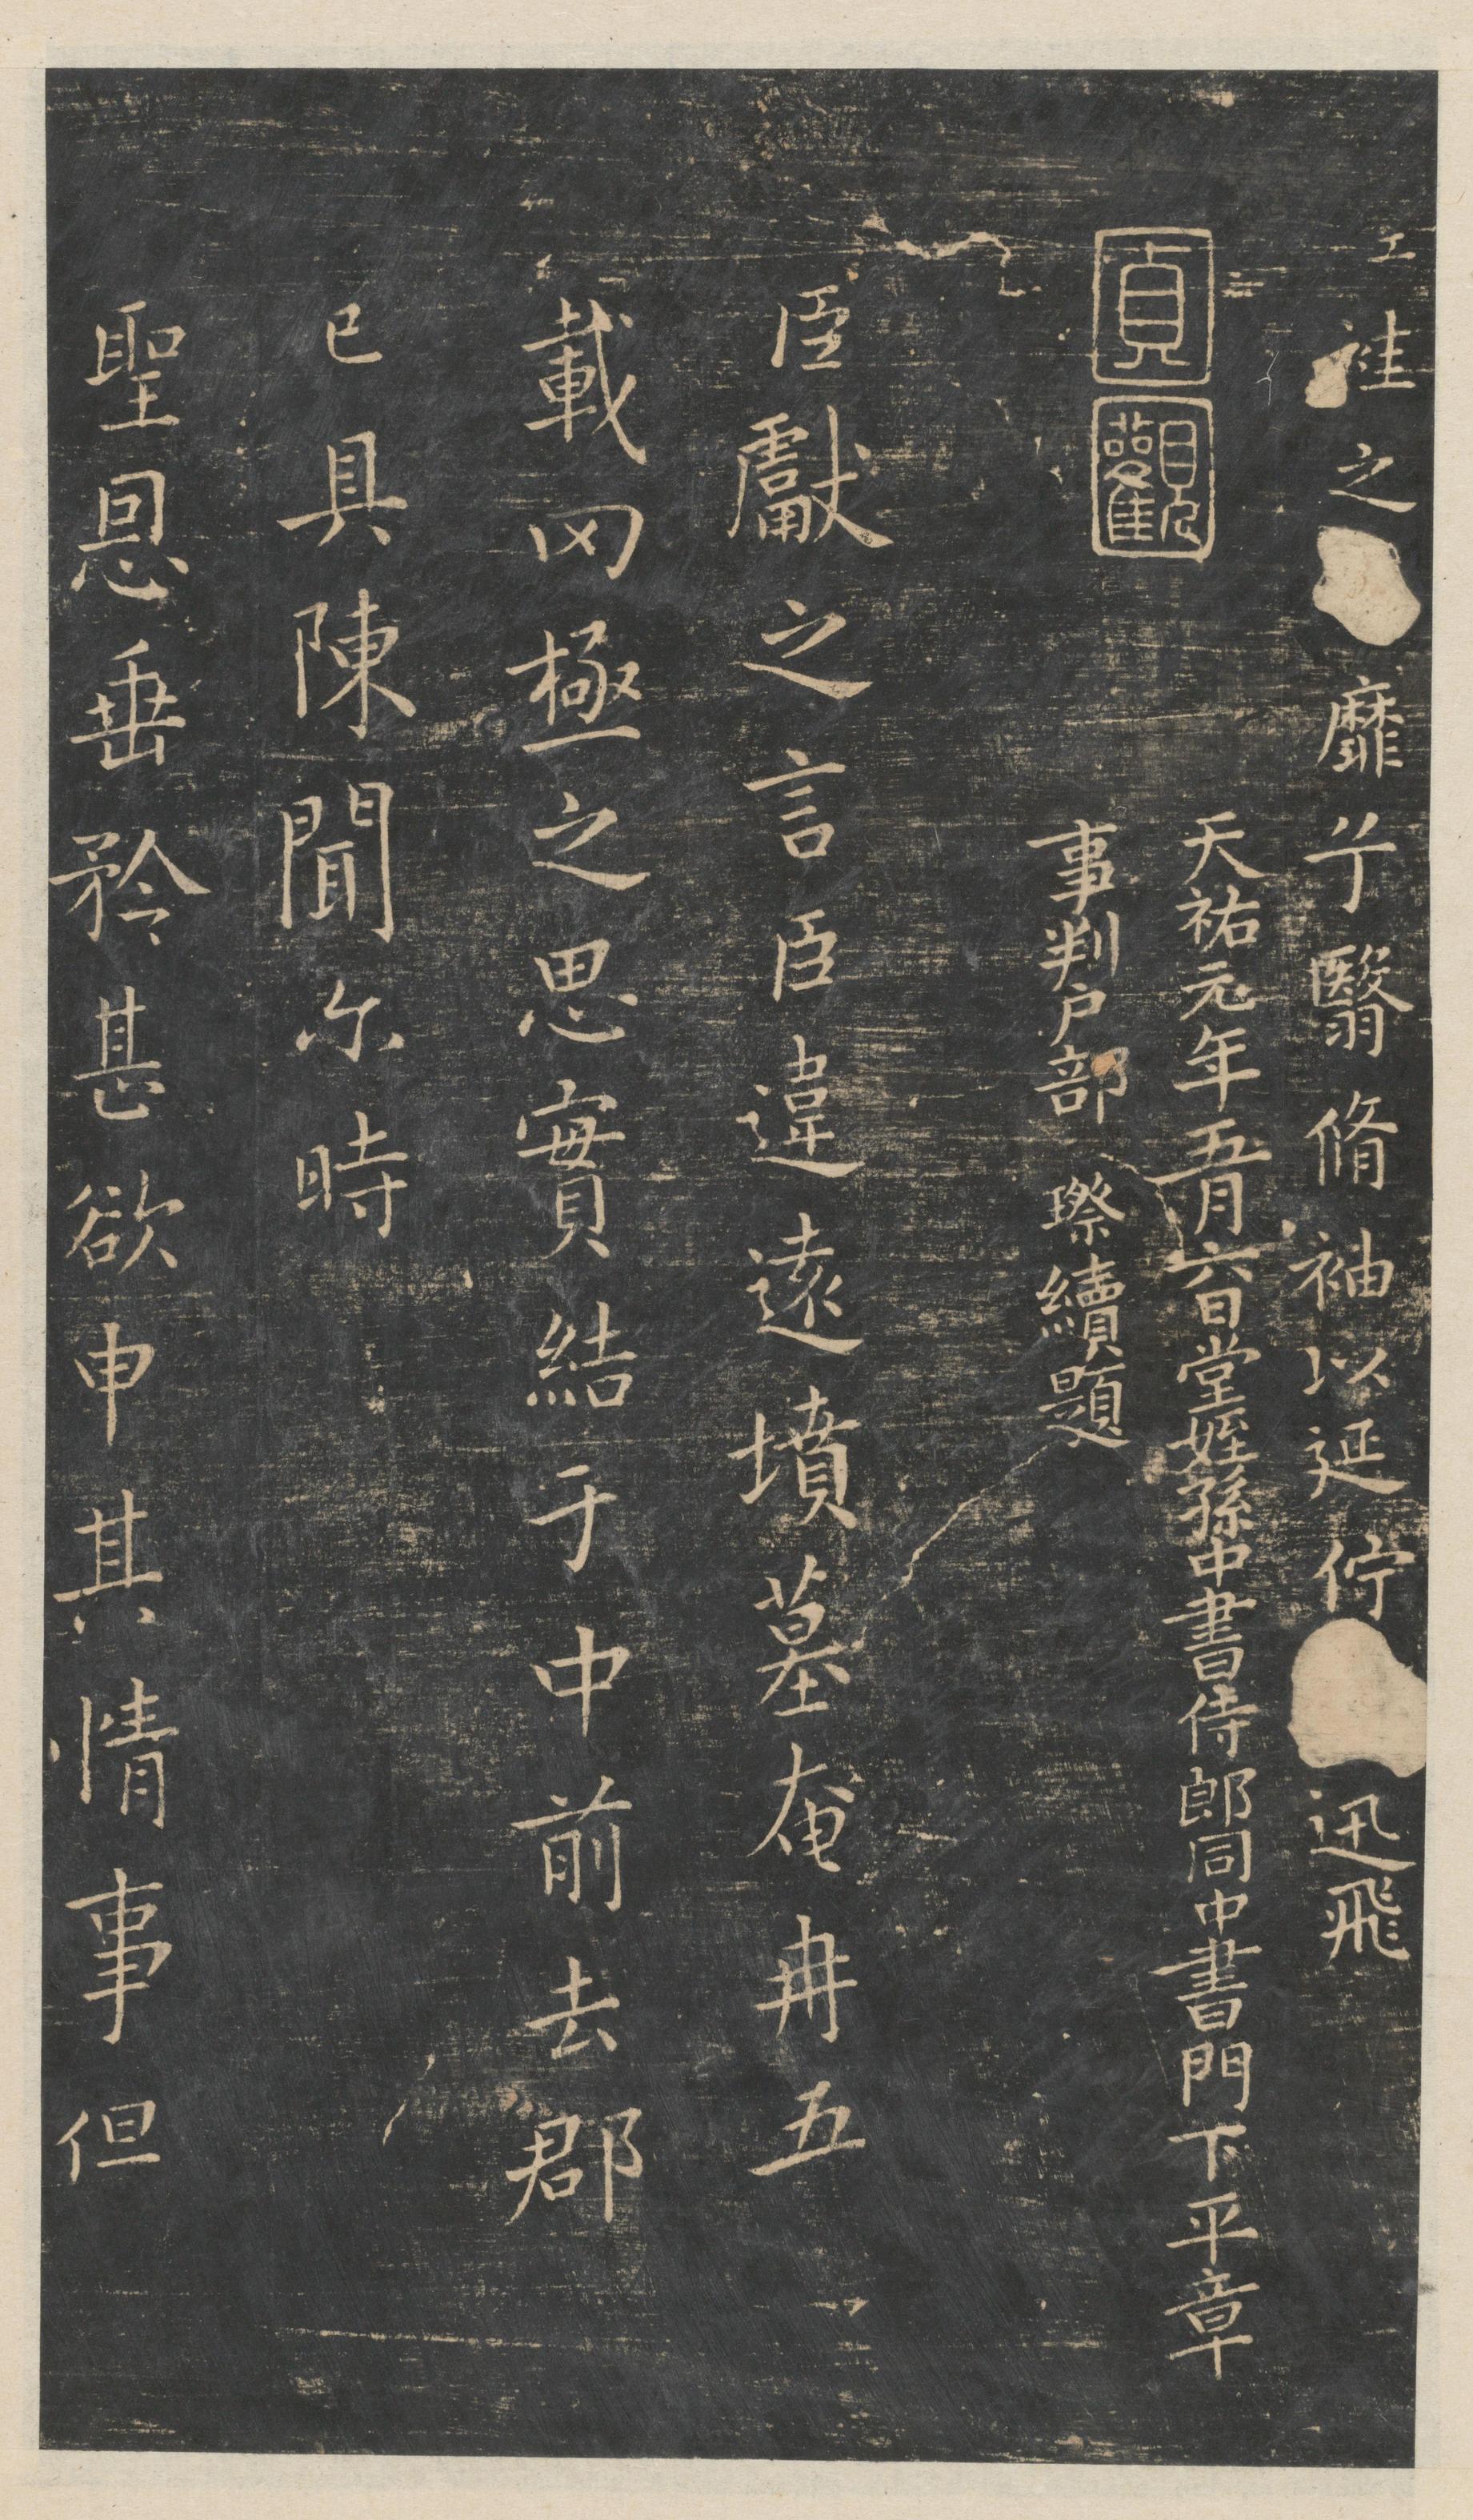 袿之靡兮翳脩袖以延佇迅飛
天祐元年五月六日堂姪孫中書侍郎同中書門下平章
事判戶部璨續題
貞觀
臣獻之言臣違遠墳墓奄冉五
載罔極之思實結于中前去郡
已具陳聞尒時
聖恩垂矜甚欲申其情事但